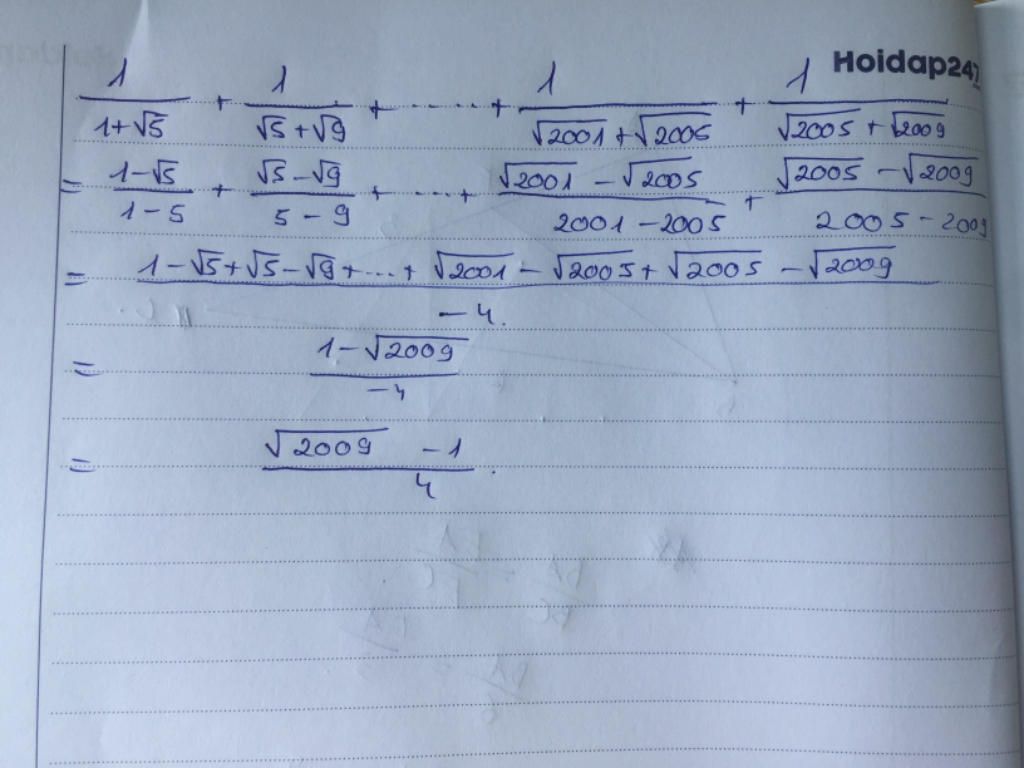 Hoidap247
1/(1+√5) + 1/(√5+√9) + ..... + 1/(√2001+√2005) + 1/(√2005+√2009)
= (1-√5)/(1-5) + (√5-√9)/(5-9) + ...+ (√2001-√2005)/(2001-2005) + (√2005-√2009)/(2005-2009)
= (1-√5+√5-√9+...+ √2001-√2005+√2005-√2009)/(-4.)
= (1-√2009)/(-4)
= (√2009-1)/4.